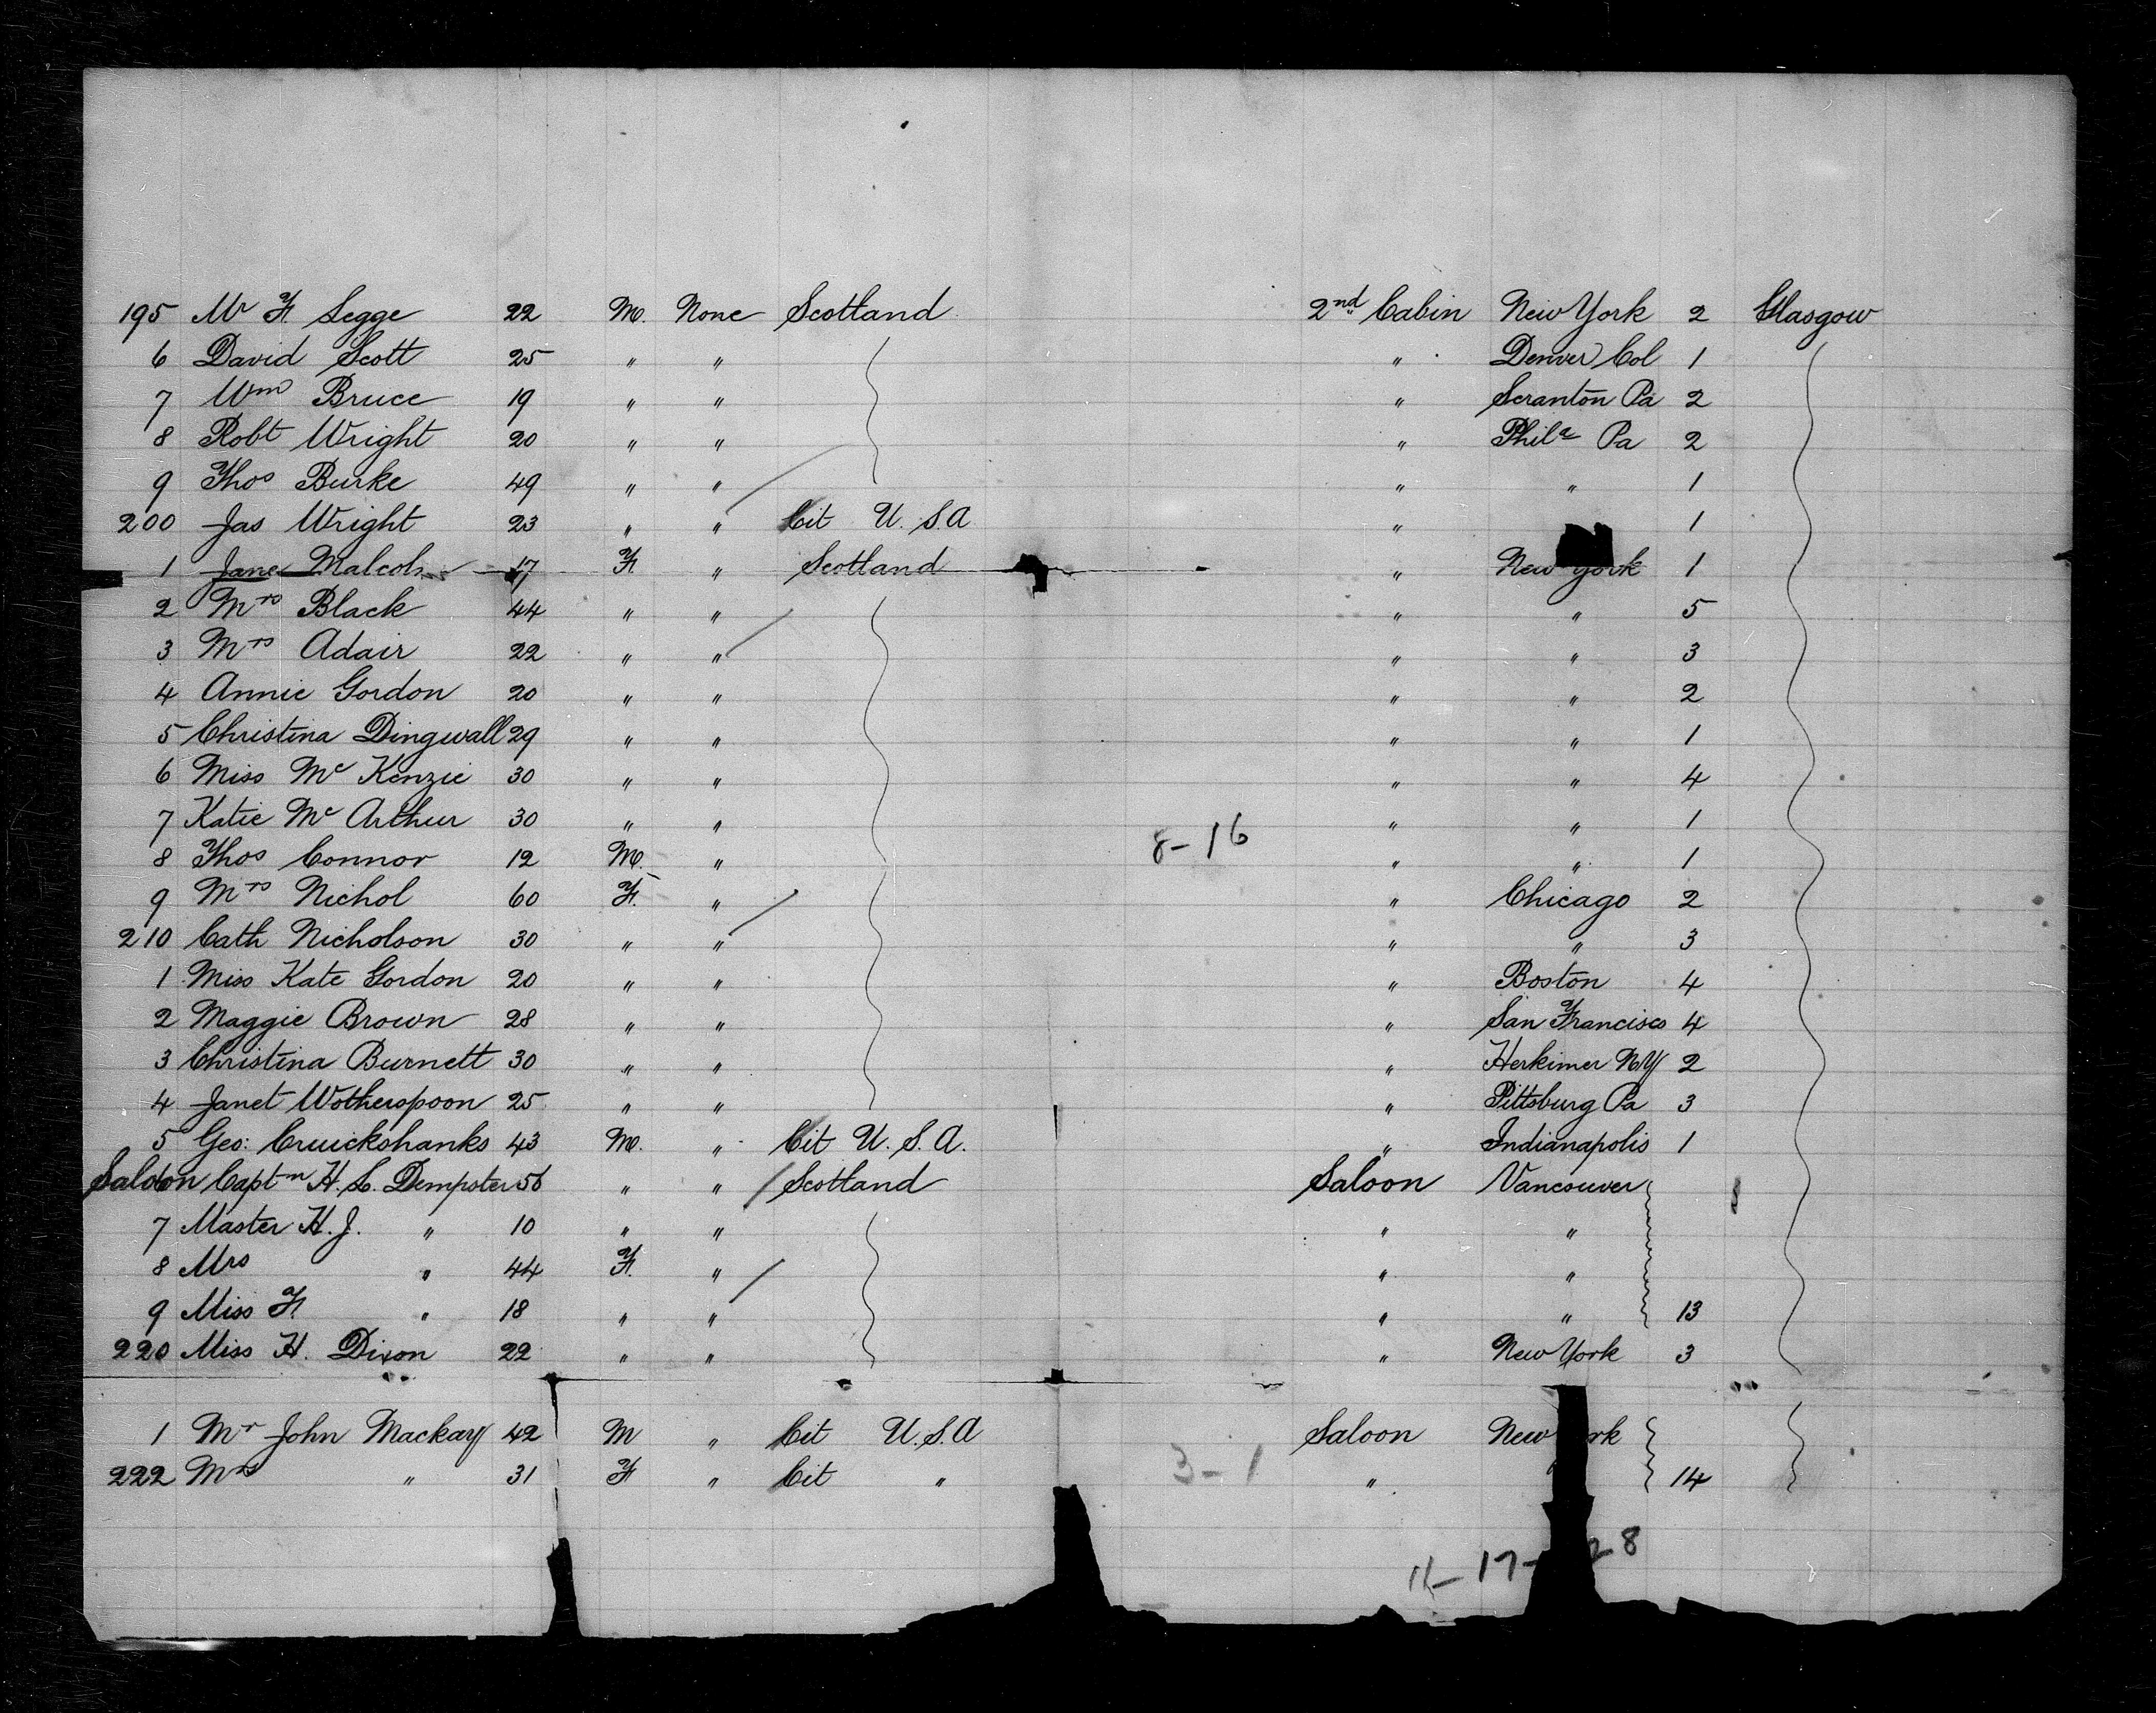 195 Mr F. Legge 22 M. None Scotland 2nd Cabin New York 2 Glasgow
6 David Scott 25 " " " Denver Col 1
7 Wm Bruce 19 " " " Scranton Pa 2
8 Robt Wright 20 " " " Phila Pa 2
9 Thos Burke 49 " " " " 1
200 Jas Wright 23 " " Cit U.S.A " 1
1 Jane 17 F. " Scotland " New York 1
2 Mrs Black 44 " " " " 5
3 Mrs Adair 22 " " " " 3
4 Annie Gordon 20 " " " " 2
5 Christina Dingwall 29 " " " " 1
6 Miss Mc Kenzie 30 " " " " 4
7 Katie Mc Arthur 30 " " " " 1
8 Thos Connor 12 M. " 8-16 " " 1
9 Mrs Nichol 60 F. " " Chicago 2
210 Cath Nicholson 30 " " " " 3
1 Miss Kate Gordon 20 " " " Boston 4
2 Maggie Brown 28 " " " San Francisco 4
3 Christina Burnett 30 " " " Herkimer N.Y 2
4 Janet Wotherspoon 25 " " " Pittsburg Pa 3
5 Geo: Cruickshanks 43 M. " Cit U.S.A. " Indianapolis 1
Saloon 6 Captn H. L. Dempster 56 " " Scotland Saloon Vancouver
7 Master H. J. " 10 " " " "
8 Mrs " 44 F. " " "
9 Miss F. " 18 " " " " 13
220 Miss H. Dixon 22 " " " New York 3
1 Mr John Mackay 42 M " Cit U.S.A Saloon New rk
222 Mrs " 31 F " Cit " 3-1 " 14
11-17- 28